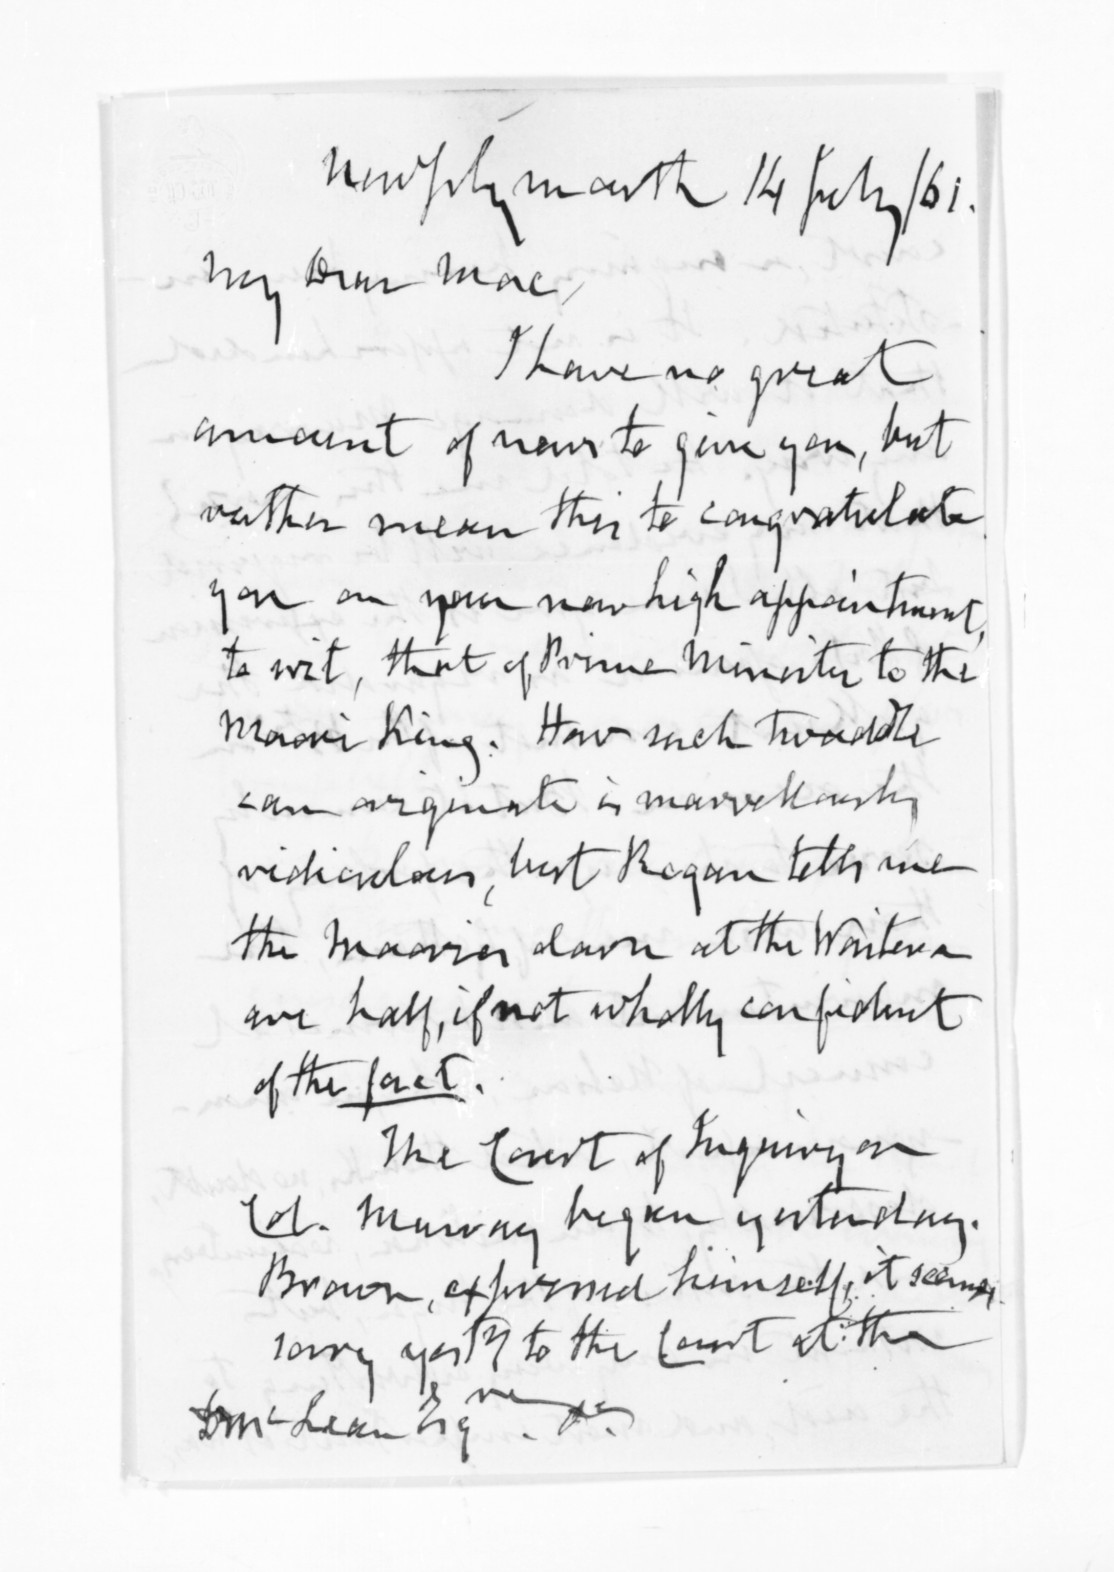 New Plymouth 14 July /61.
My Dear Mac,
I have no great
amount of news to give you, but
rather mean this to congratulate
you on your new high appointment,
to wit, that of Prime Minister to the
Maori King. How such twaddle
can originate is marvellously
ridiculous, but Rogan tells me
the Maories down at the Waitera
are half, if not wholly confident
of the fact.
The Court of Inquiry on
Col. Murray began yesterday.
Brown, expressed himself, it seems,
sorry yesty to the Court at the
D McLean Esqre